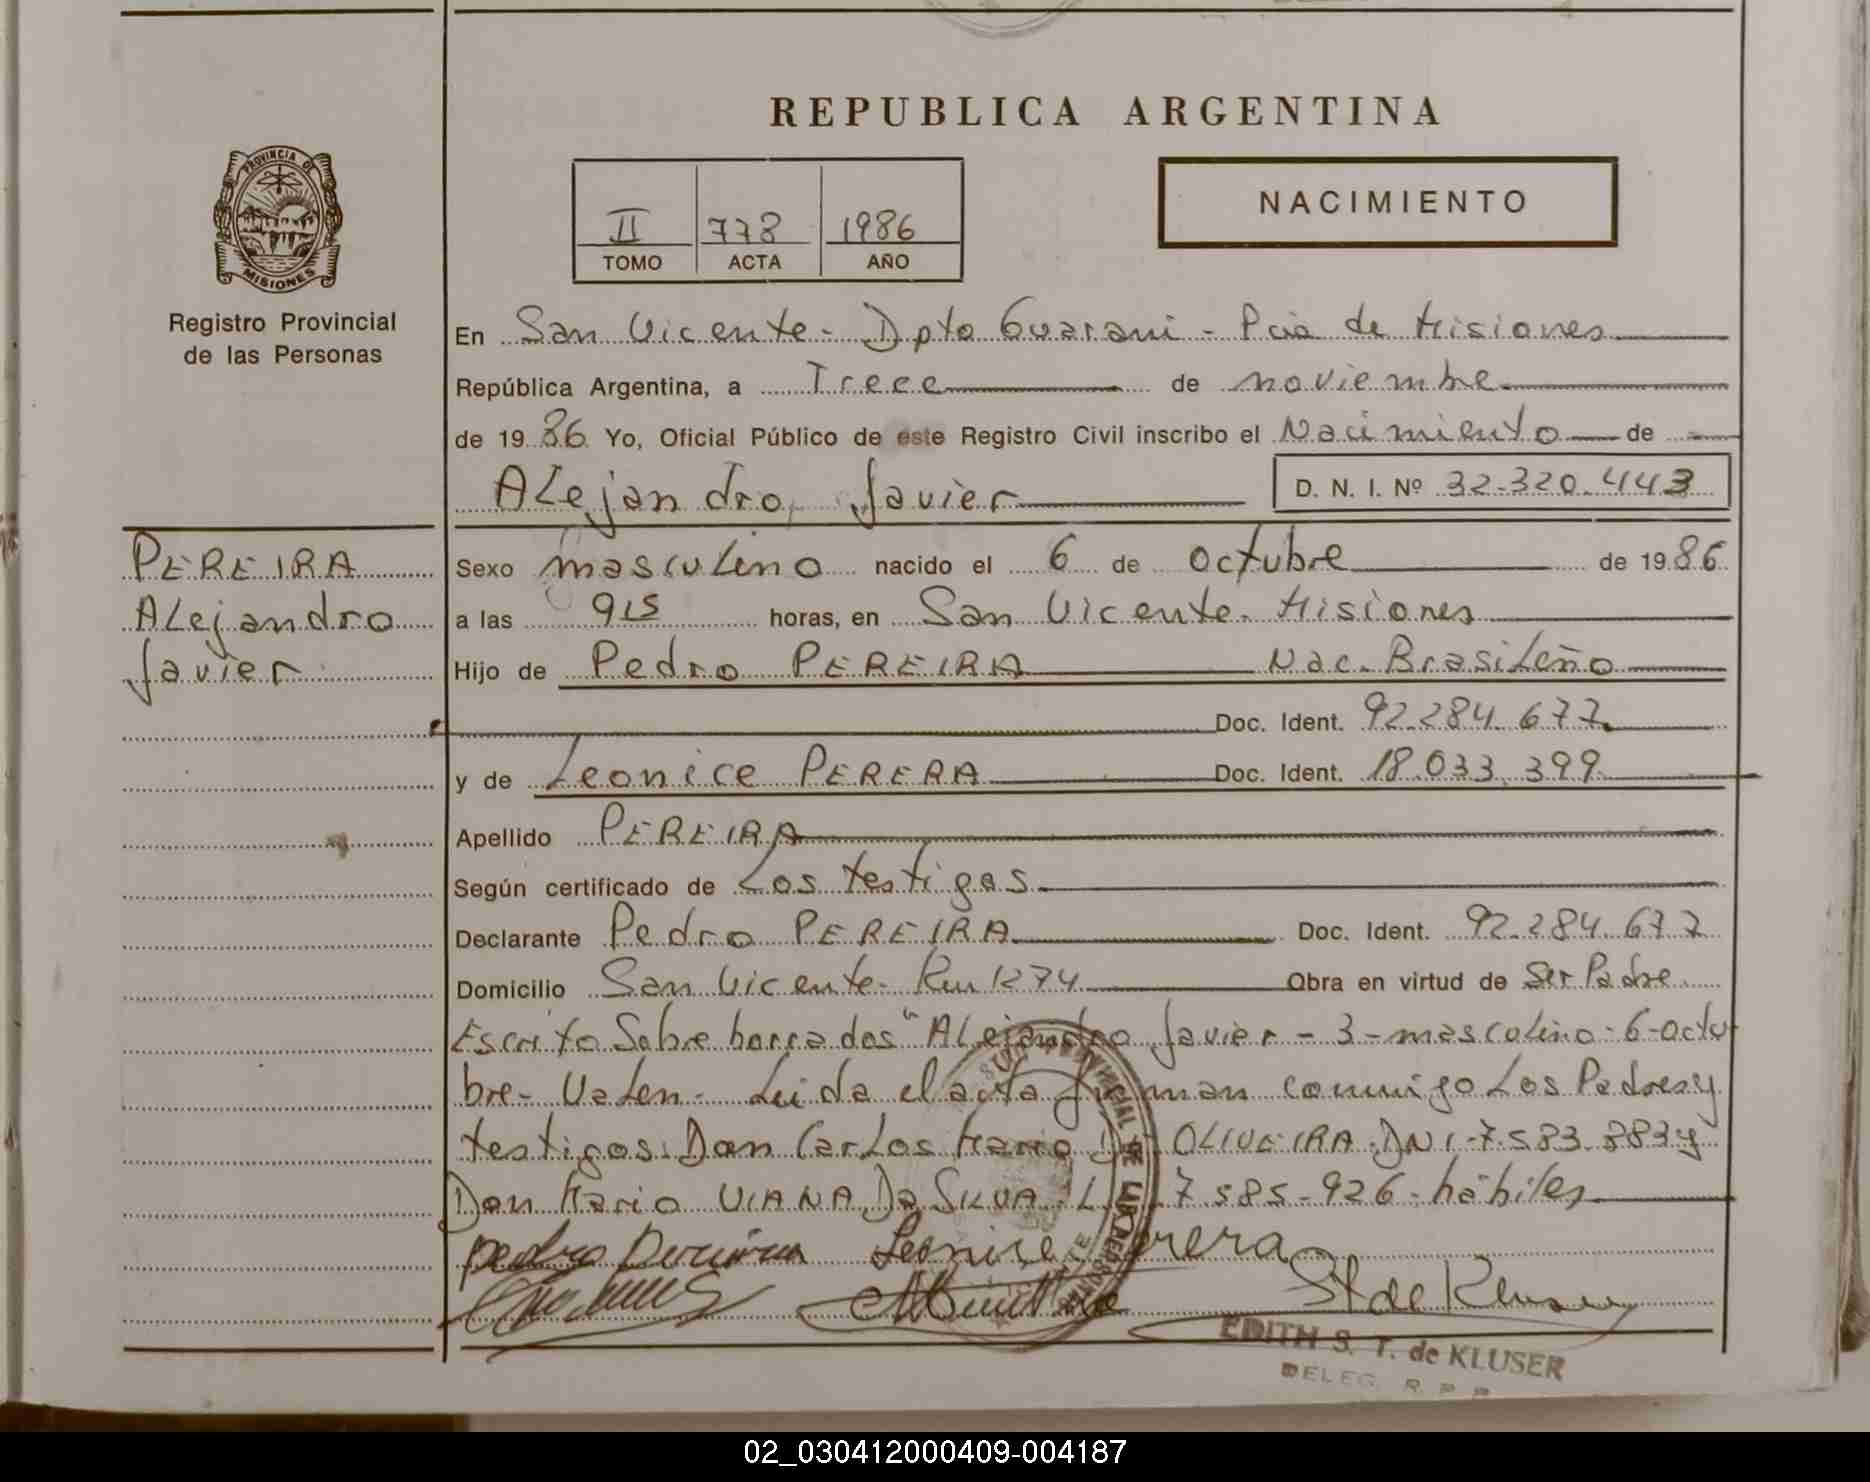 REPUBLICA ARGENTINA
PROVINCIA DE
MISIONES
Registro Provincial
de las Personas
II 778 1986
TOMO ACTA AÑO
NACIMIENTO
En San Vicente - Dpto Guarani - Pcia de Misiones
República Argentina, a Trece de noviembre
de 1986 Yo, Oficial Público de este Registro Civil inscribo el Nacimiento de
Alejandro, Javier D. N. I. Nº 32-320.443
PEREIRA
Alejandro
Javier
Sexo masculino nacido el 6 de octubre de 1986
a las 915 horas, en San Vicente. Misiones
Hijo de Pedro PEREIRA Nac. Brasileño
Doc. Ident. 92.284.677
y de Leonice PERERA Doc. Ident. 18.033.399
Apellido PEREIRA
Según certificado de Los testigos
Declarante Pedro PEREIRA Doc. Ident. 92.284.677
Domicilio San Vicente. Km 1274 Obra en virtud de Ser Padre
Escrito Sobre borrados "Alejandro Javier - 3 - masculino - 6 - octu
bre - Valen. Leida el acta firman conmigo Los Padres y
testigos: Don Carlos Mario OLIVEIRA DNI 7.583.883 y
Don Mario VIANA Da SILVA L 7.585-926 - hábiles
Pedro Pereira Leonice Perera
St de Kluser
EDITH S. T. de KLUSER
DELEG. R. P. P.
02_030412000409-004187